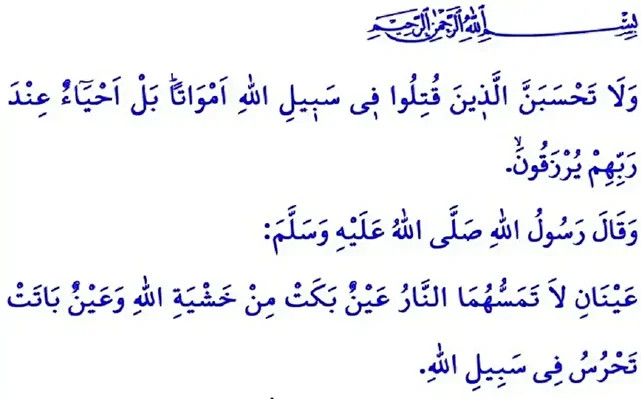 بِسْمِ اللهِ الرَّحْمٰنِ الرَّحِيمِ
وَلَا تَحْسَبَنَّ الَّذ۪ينَ قُتِلُوا ف۪ي سَب۪يلِ اللهِ اَمْوَاتاًۜ بَلْ اَحْيَٓاءٌ عِنْدَ
رَبِّهِمْ يُرْزَقُونَۙ.
وَقَالَ رَسُولُ اللهِ صَلَّى اللهُ عَلَيْهِ وَسَلَّمَ:
عَيْنَانِ لاَ تَمَسُّهُمَا النَّارُ عَيْنٌ بَكَتْ مِنْ خَشْيَةِ اللهِ وَعَيْنٌ بَاتَتْ
تَحْرُسُ فِى سَبِيلِ اللهِ.